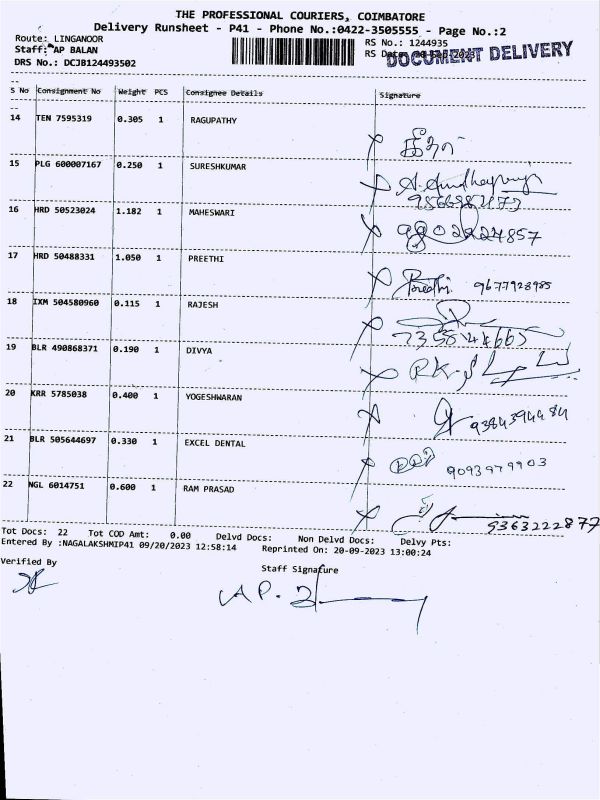 THE PROFESSIONAL COURIERS, COIMBATORE
Delivery Runsheet - P41 - Phone No.:0422-3505555 - Page No.:2
Route: LINGANOOR
RS No.: 1244935
Staff: AP BALAN
RS Date:
DOCUMENT DELIVERY
DRS No.: DCJB124493502
S No Consignment No Weight PCS Consignee Details Signature
14 TEN 7595319 0.305 1 RAGUPATHY
15 PLG 600007167 0.250 1 SURESHKUMAR
16 HRD 50523024 1.182 1 MAHESWARI
17 HRD 50488331 1.050 1 PREETHI
Preethi 9677928985
18 IXM 504580960 0.115 1 RAJESH
19 BLR 490868371 0.190 1 DIVYA
20 KRR 5785038 0.400 1 YOGESHWARAN
9384394484
21 BLR 505644697 0.330 1 EXCEL DENTAL
9093979903
22 NGL 6014751 0.600 1 RAM PRASAD
9363222877
Tot Docs: 22 Tot COD Amt: 0.00 Delvd Docs: Non Delvd Docs: Delvy Pts:
Entered By :NAGALAKSHMIP41 09/20/2023 12:58:14 Reprinted On: 20-09-2023 13:00:24
Verified By
Staff Signature